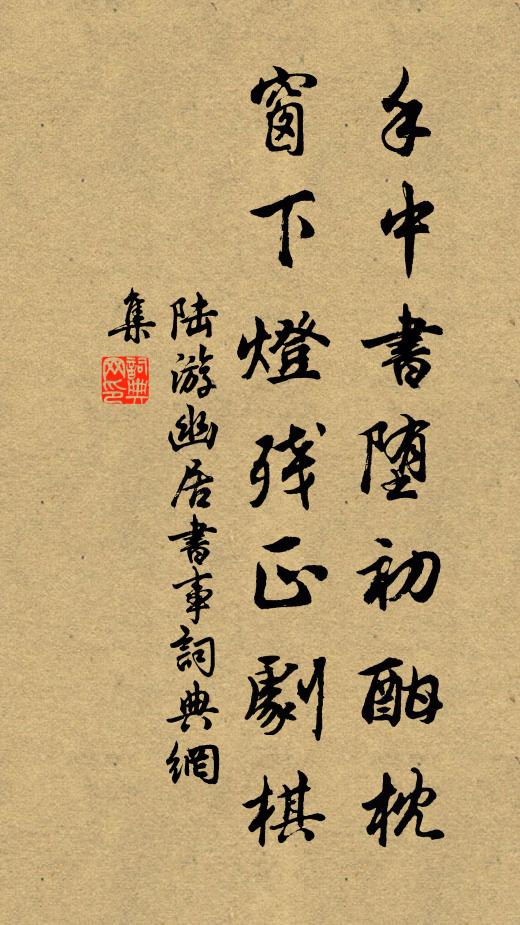 手中書堕初酣枕
窗下燈残正劇棋
陸游幽居書事詞典網
集
詞典
网印